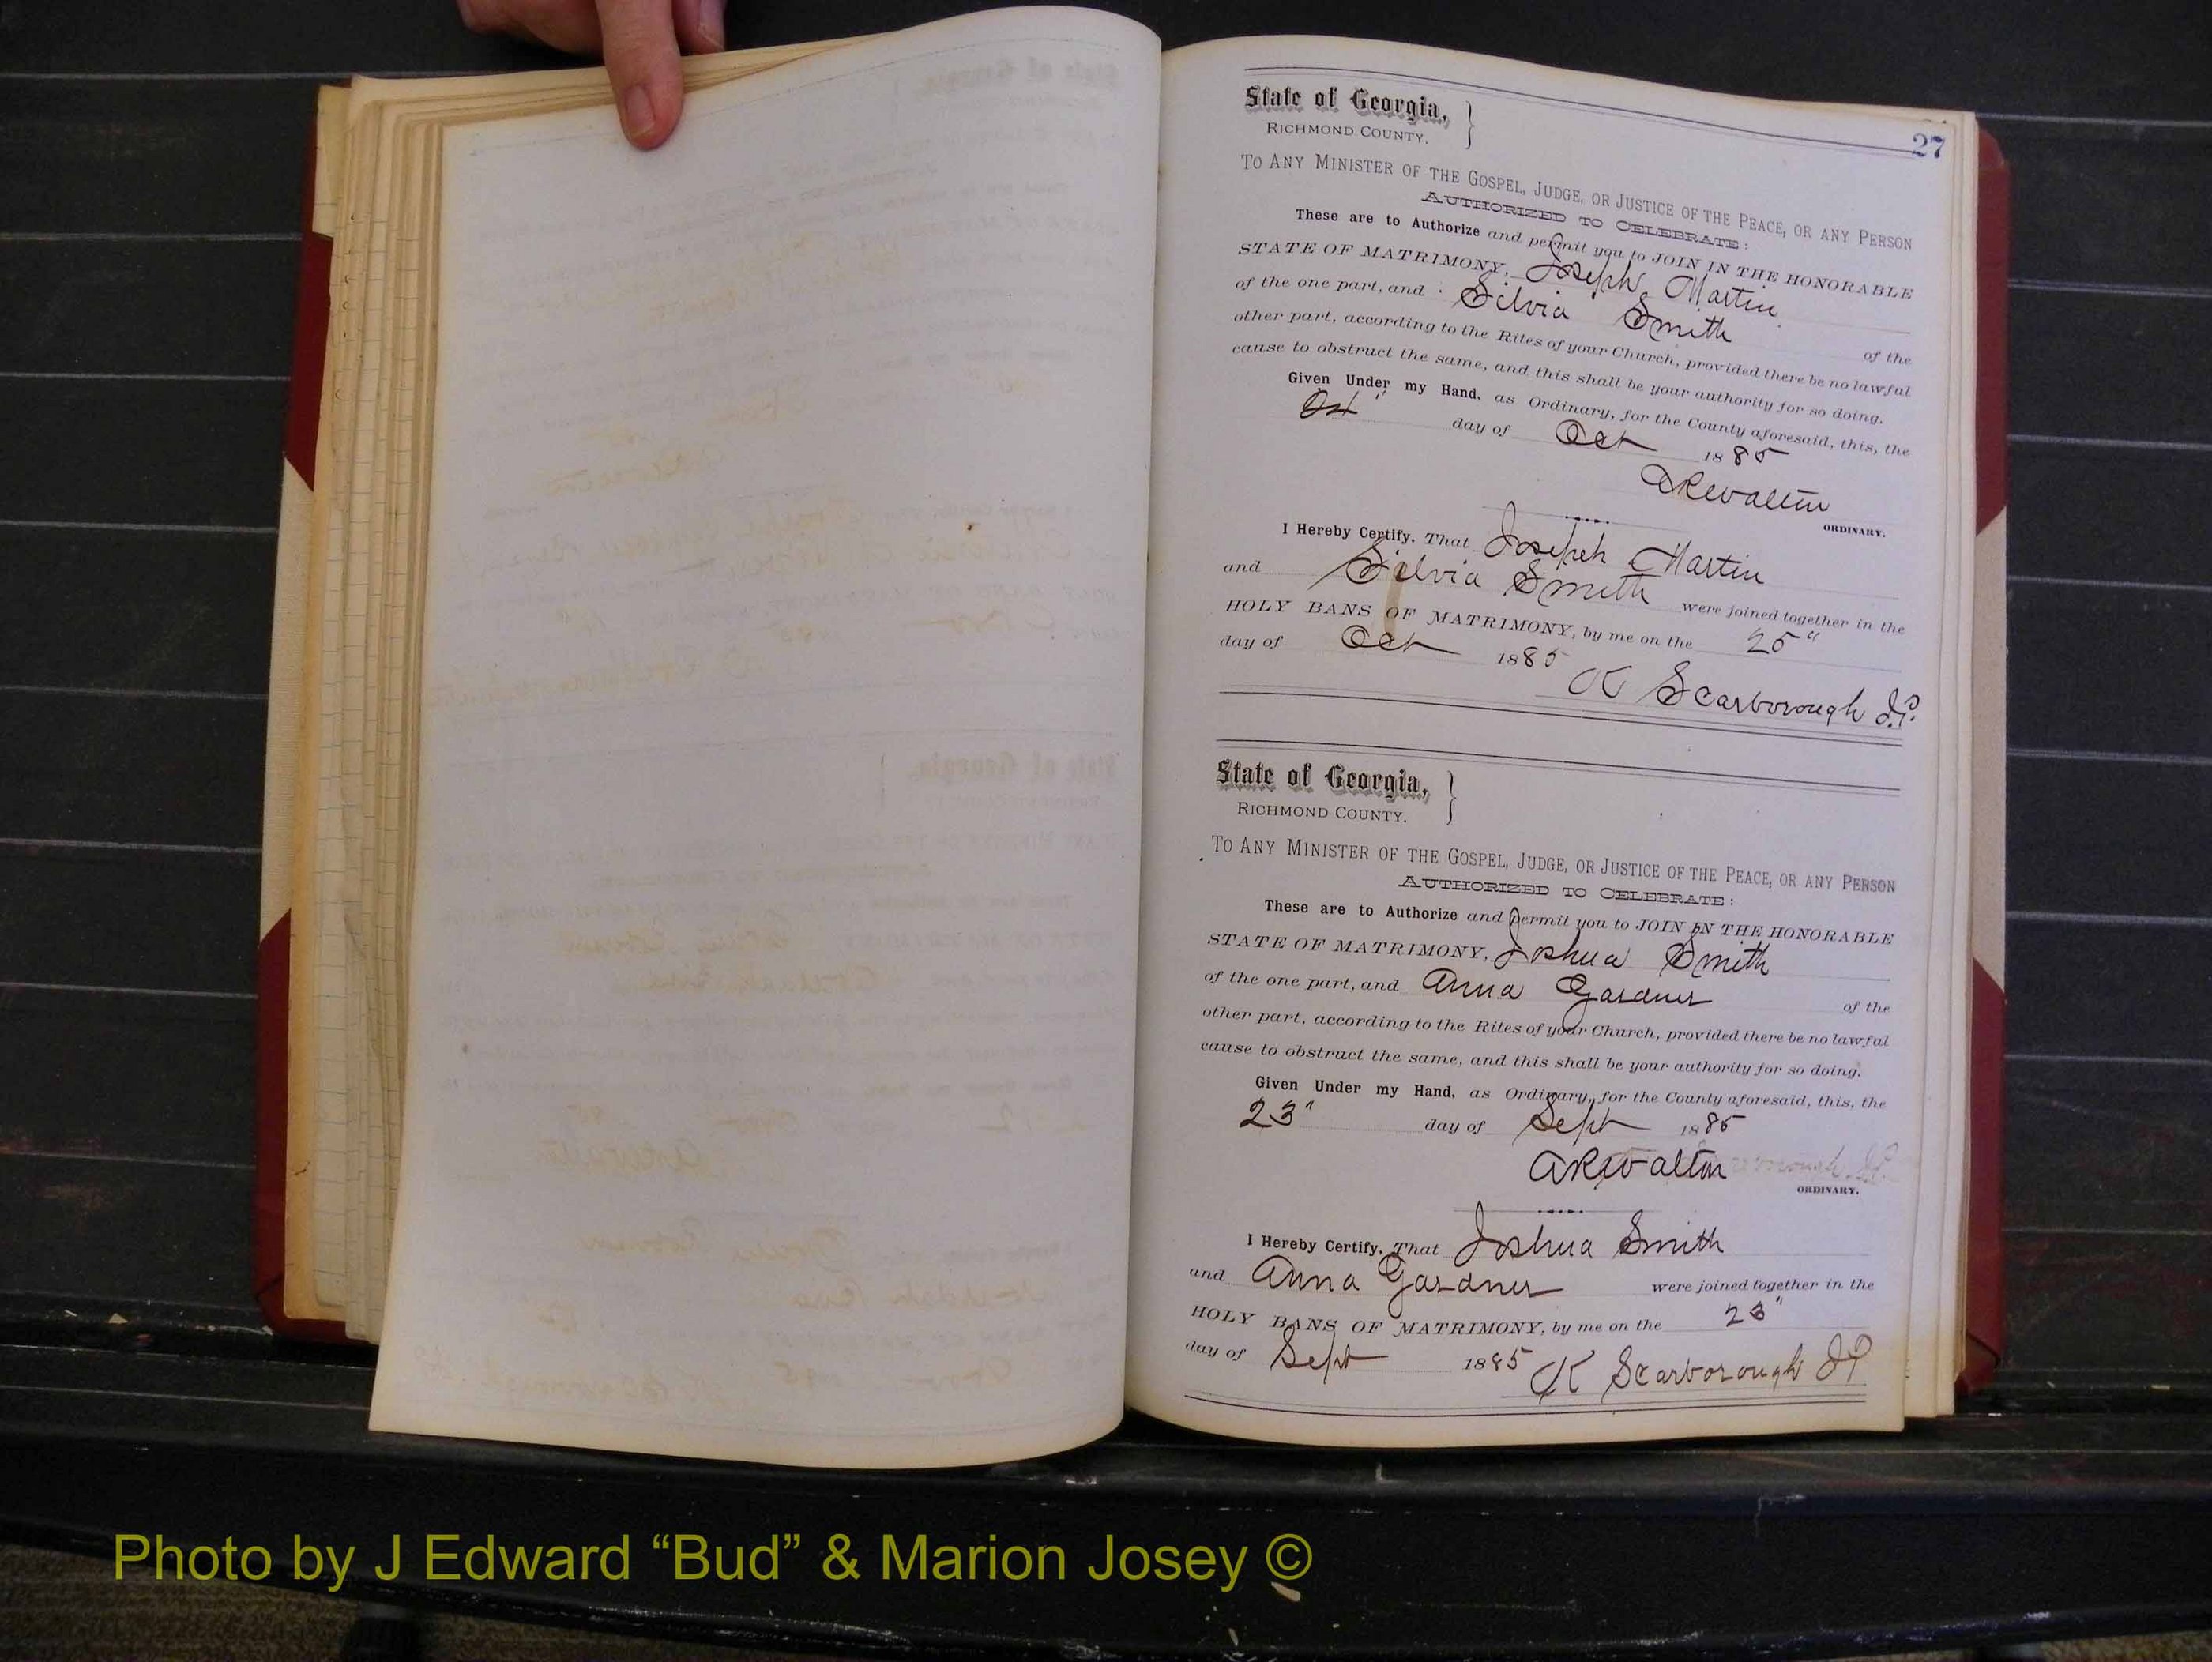 27
State of Georgia,
RICHMOND COUNTY.
TO ANY MINISTER OF THE GOSPEL, JUDGE, OR JUSTICE OF THE PEACE, OR ANY PERSON
AUTHORIZED TO CELEBRATE:
These are to Authorize and permit you to JOIN IN THE HONORABLE
STATE OF MATRIMONY, Joseph Martin
of the one part, and Silvia Smith of the
other part, according to the Rites of your Church, provided there be no lawful
cause to obstruct the same, and this shall be your authority for so doing.
Given Under my Hand, as Ordinary, for the County aforesaid, this, the
day of Oct 1885
ARWalton
ORDINARY.
I Hereby Certify, That Joseph Martin
and Silvia Smith were joined together in the
HOLY BANS OF MATRIMONY, by me on the 25"
day of Oct 1885
K Scarborough J.P.
State of Georgia,
RICHMOND COUNTY.
TO ANY MINISTER OF THE GOSPEL, JUDGE, OR JUSTICE OF THE PEACE, OR ANY PERSON
AUTHORIZED TO CELEBRATE:
These are to Authorize and permit you to JOIN IN THE HONORABLE
STATE OF MATRIMONY, Joshua Smith
of the one part, and Anna Gardner of the
other part, according to the Rites of your Church, provided there be no lawful
cause to obstruct the same, and this shall be your authority for so doing.
Given Under my Hand, as Ordinary, for the County aforesaid, this, the
23" day of Sept 1885
ARWalton
ORDINARY.
I Hereby Certify, That Joshua Smith
and Anna Gardner were joined together in the
HOLY BANS OF MATRIMONY, by me on the 23"
day of Sept 1885 K Scarborough JP
Photo by J Edward “Bud” & Marion Josey ©